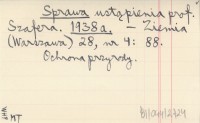 Sprawa ustąpienia prof.
Szafera. 1938a. – Ziemia
(Warszawa) 28, nr 4: 88.
Ochrona przyrody.
MT